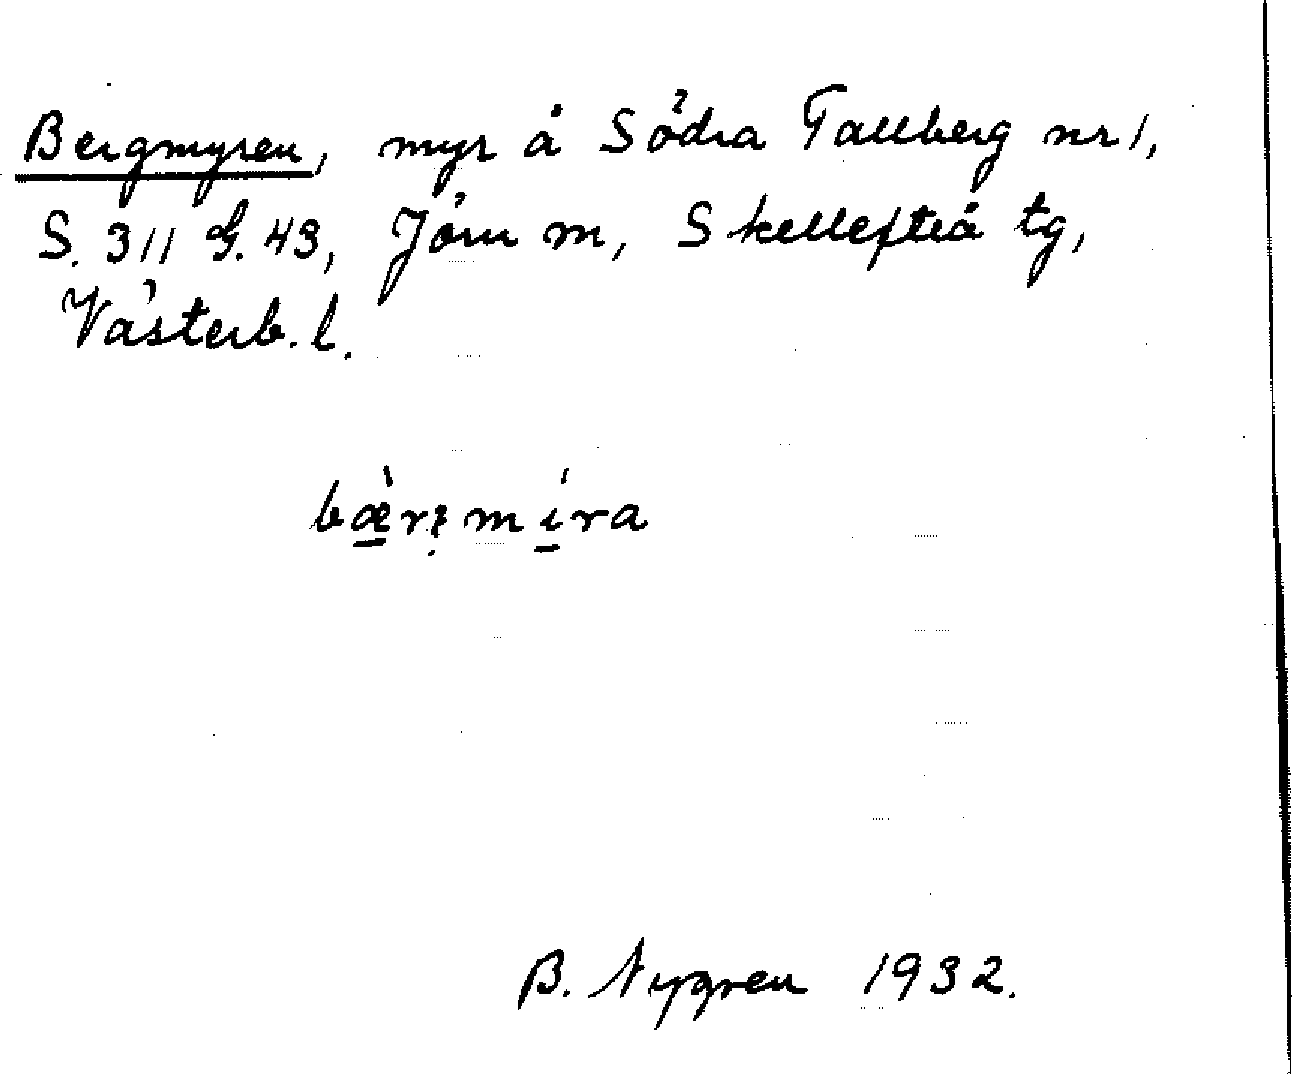 Bergmyren, myr å Södra Tallberg nr 1,
S. 311 G. 43, Jörn m, Skellefteå tg,
Västerb. l.
bæ̀rmíra
B. Nygren 1932.